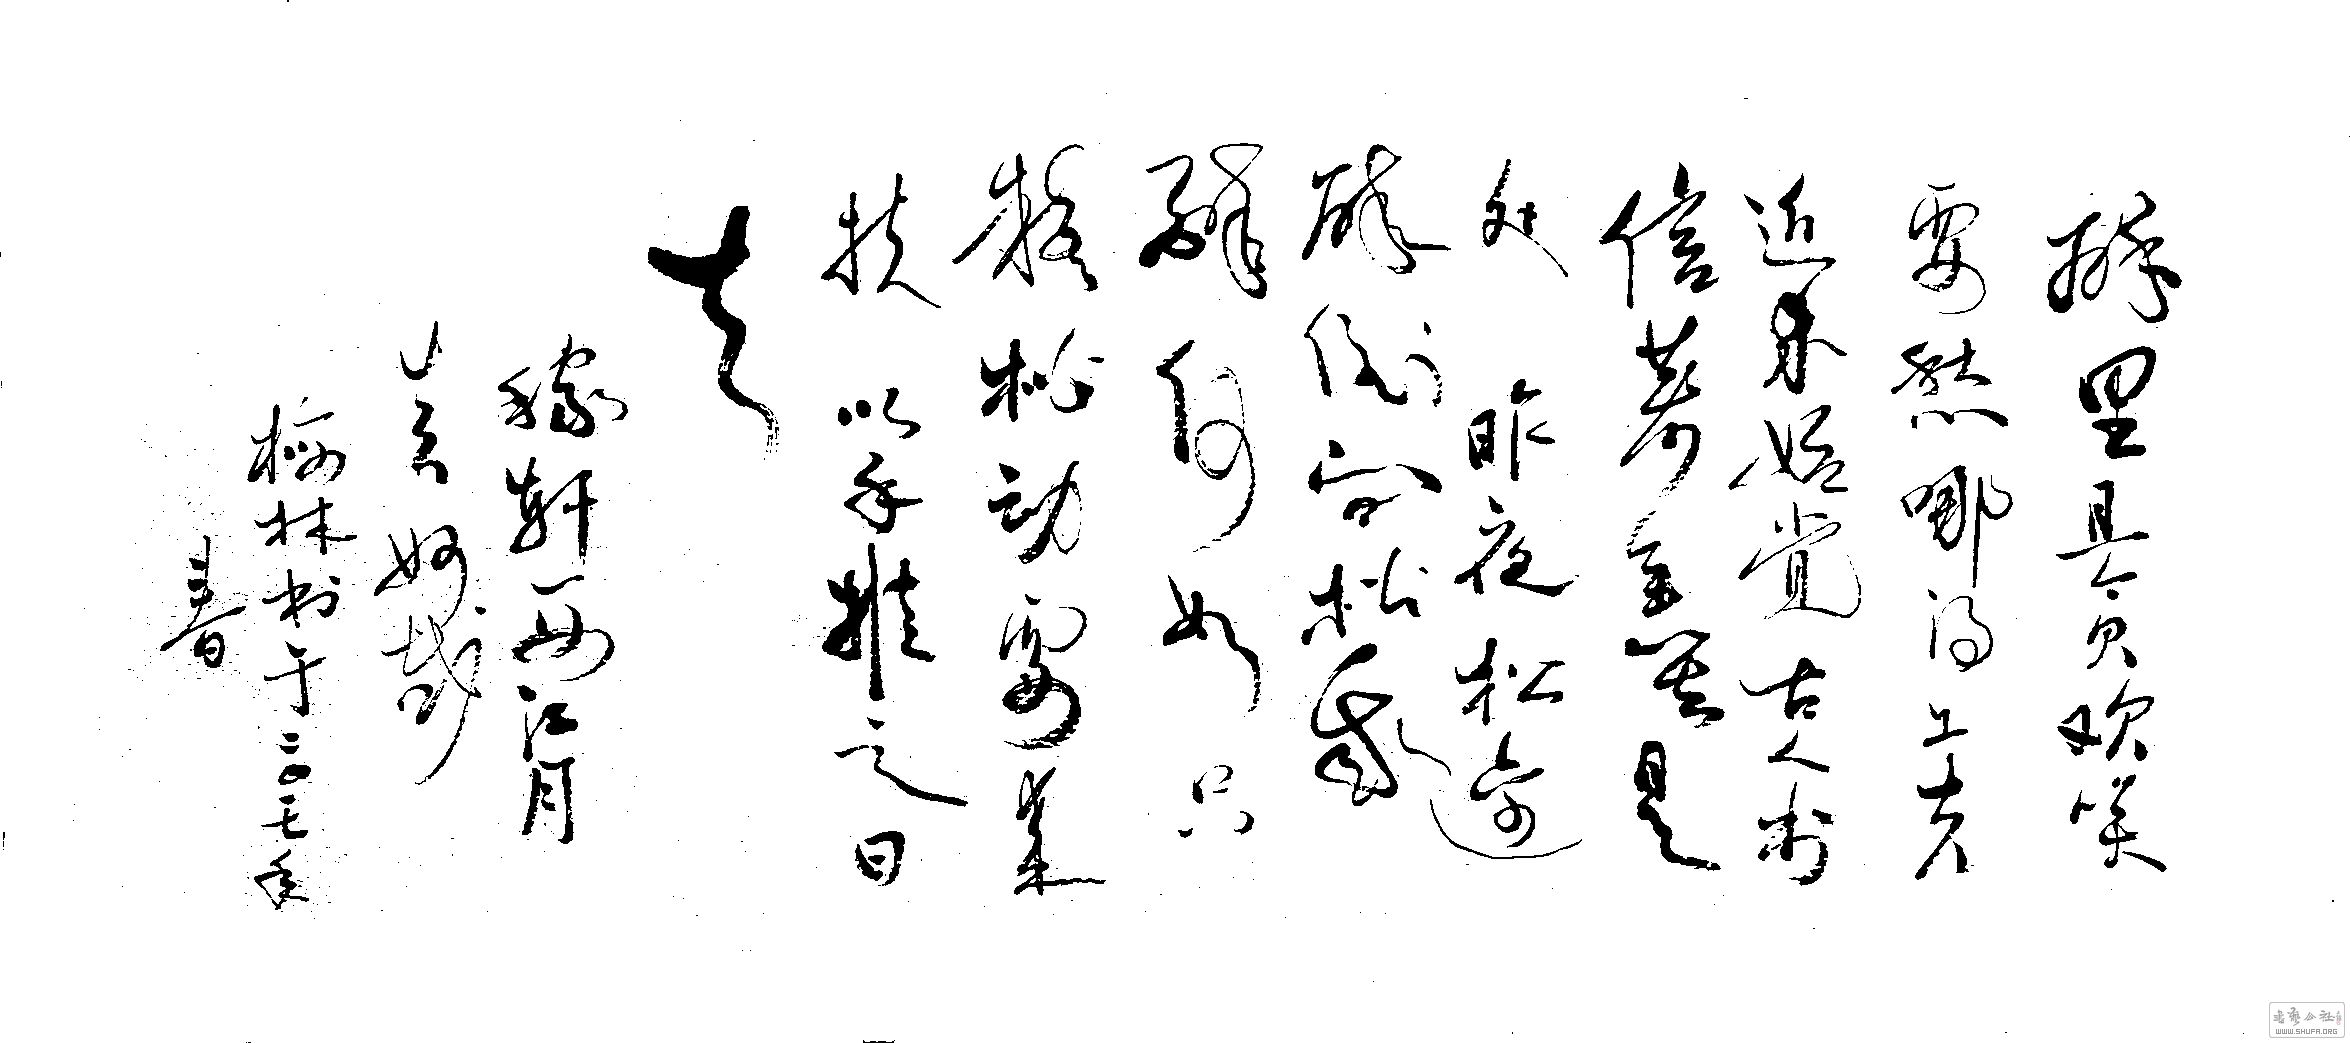 醉里且贪欢笑
要愁哪得工夫
近来始觉古人书
信著全无是
处昨夜松边
醉倒问松我
醉何如只
疑松动要来
扶以手推之曰
去
稼轩西江月
妙哉
林书于二〇一七年
春
书艺公社
WWW.SHUFA.ORG